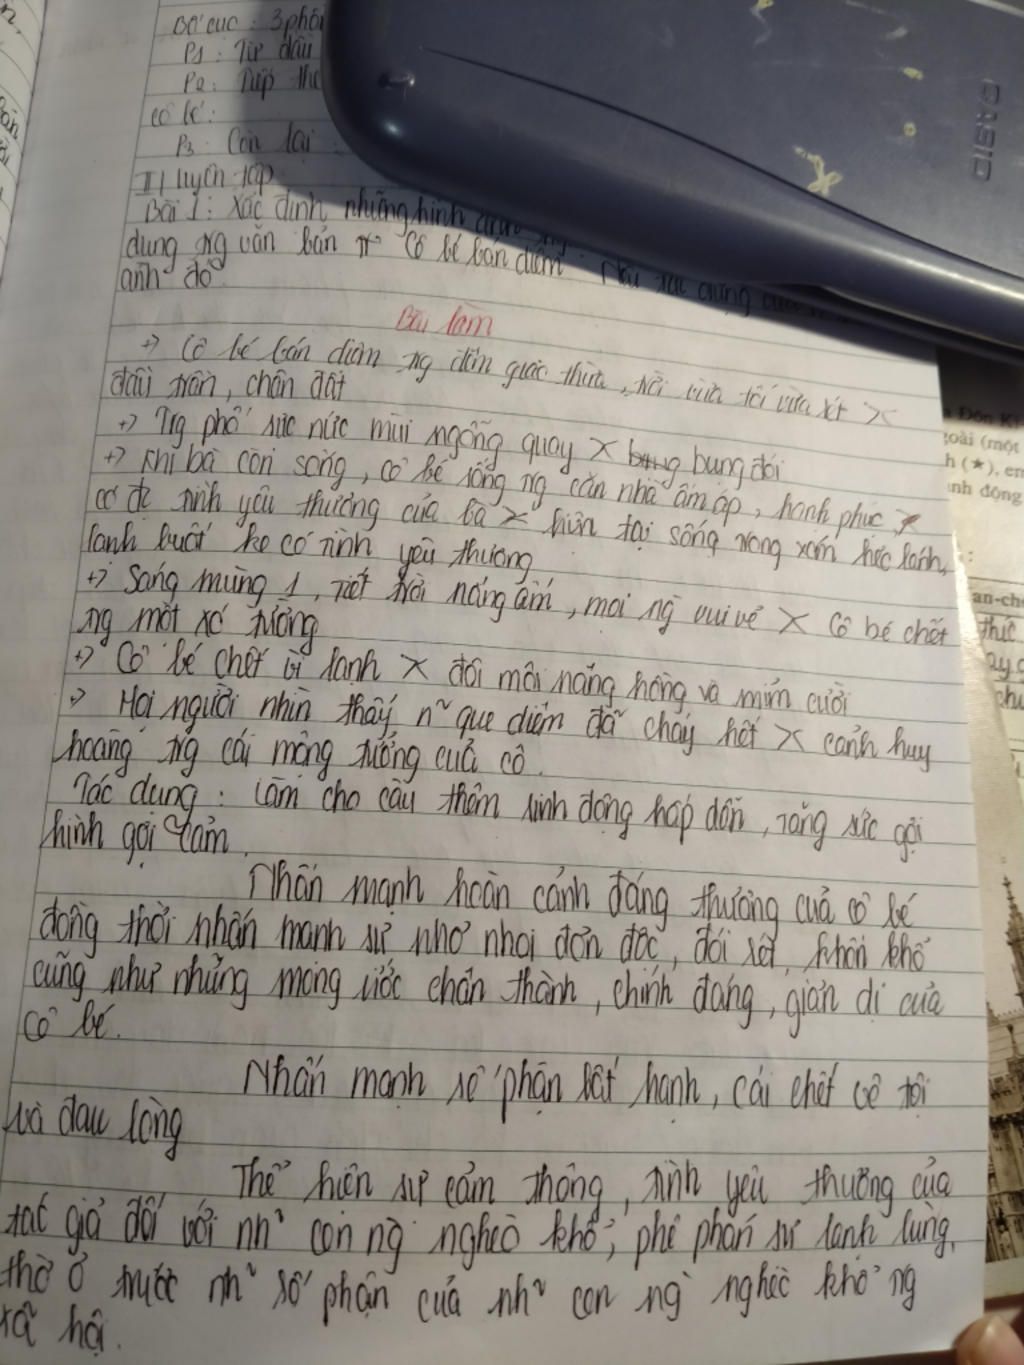 Bố cục : 3 phần
P1 : Từ đầu
P2 : Tiếp the
cô bé.
P3 : Còn lại :
II) luyện tập
Bài 1 : Xác định những hình ảnh
dụng trg văn bản "Cô bé bán diêm". Nêu tác dụng
ảnh đó
Bài làm
+) Cô bé bán diêm trg đêm giao thừa, trời vừa tối vừa rét X
đầu trần, chân đất
+) Trg phố sực nức mùi ngỗng quay X bụng đói
+) Khi bà còn sống, cô bé sống trg căn nhà ấm áp, hạnh phúc,
có đc tình yêu thương của bà X hiện tại sống trong xóm hẻo lánh,
lạnh buốt ko có tình yêu thương
+) Sáng mùng 1, tiết trời nắng ấm, mọi ng vui vẻ X Cô bé chết
trg một xó tường
+) Cô bé chết vì lạnh X đôi môi nắng hồng và mỉm cười
+) Mọi người nhìn thấy n~ que diêm đã cháy hết X cảnh huy
hoàng trg cái mộng tưởng của cô.
Tác dụng : Làm cho câu thêm sinh động hấp dẫn, tăng sức gợi
hình gợi cảm.
Nhấn mạnh hoàn cảnh đáng thương của cô bé
đồng thời nhấn mạnh sự nhỏ nhoi đơn độc, đói rét, khốn khổ
cũng như những mong ước chân thành, chính đáng, giản dị của
cô bé.
Nhấn mạnh số phận bất hạnh, cái chết vô tội
và đau lòng
Thể hiện sự cảm thông, tình yêu thương của
tác giả đối với nh~ con ng` nghèo khổ, phê phán sự lạnh lùng,
thờ ơ trước nh~ số phận của nh~ con ng` nghèo khổ trg
xã hội.
CASIO
Đôn Ki
goài (một
h (★), em
ình động
an-ch
thức